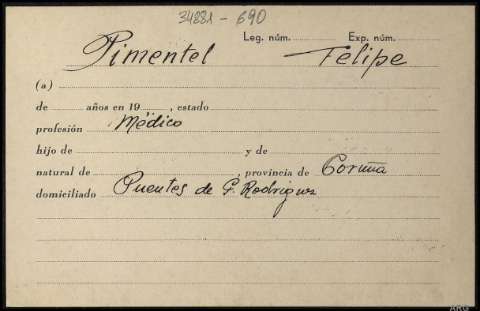 34881-690
Leg. núm. Exp. núm.
Pimentel Felipe
(a)
de años en 19 , estado
profesión Médico
hijo de y de
natural de , provincia de Coruña
domiciliado Puentes de G. Rodriguez
ARG